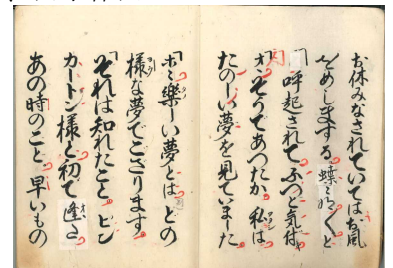 お休みなされていてはお風
をめしまする。蝶々〳〵と
呼起されて、ふつと気付
「オヽそうであつたか。私は
たのしい夢を見ていました。
「ホヽ樂しい夢とは。どの
様な夢でござります。
「それは知れたこと。ピン
カートン様と初て逢た
あの時のこと。早いもの